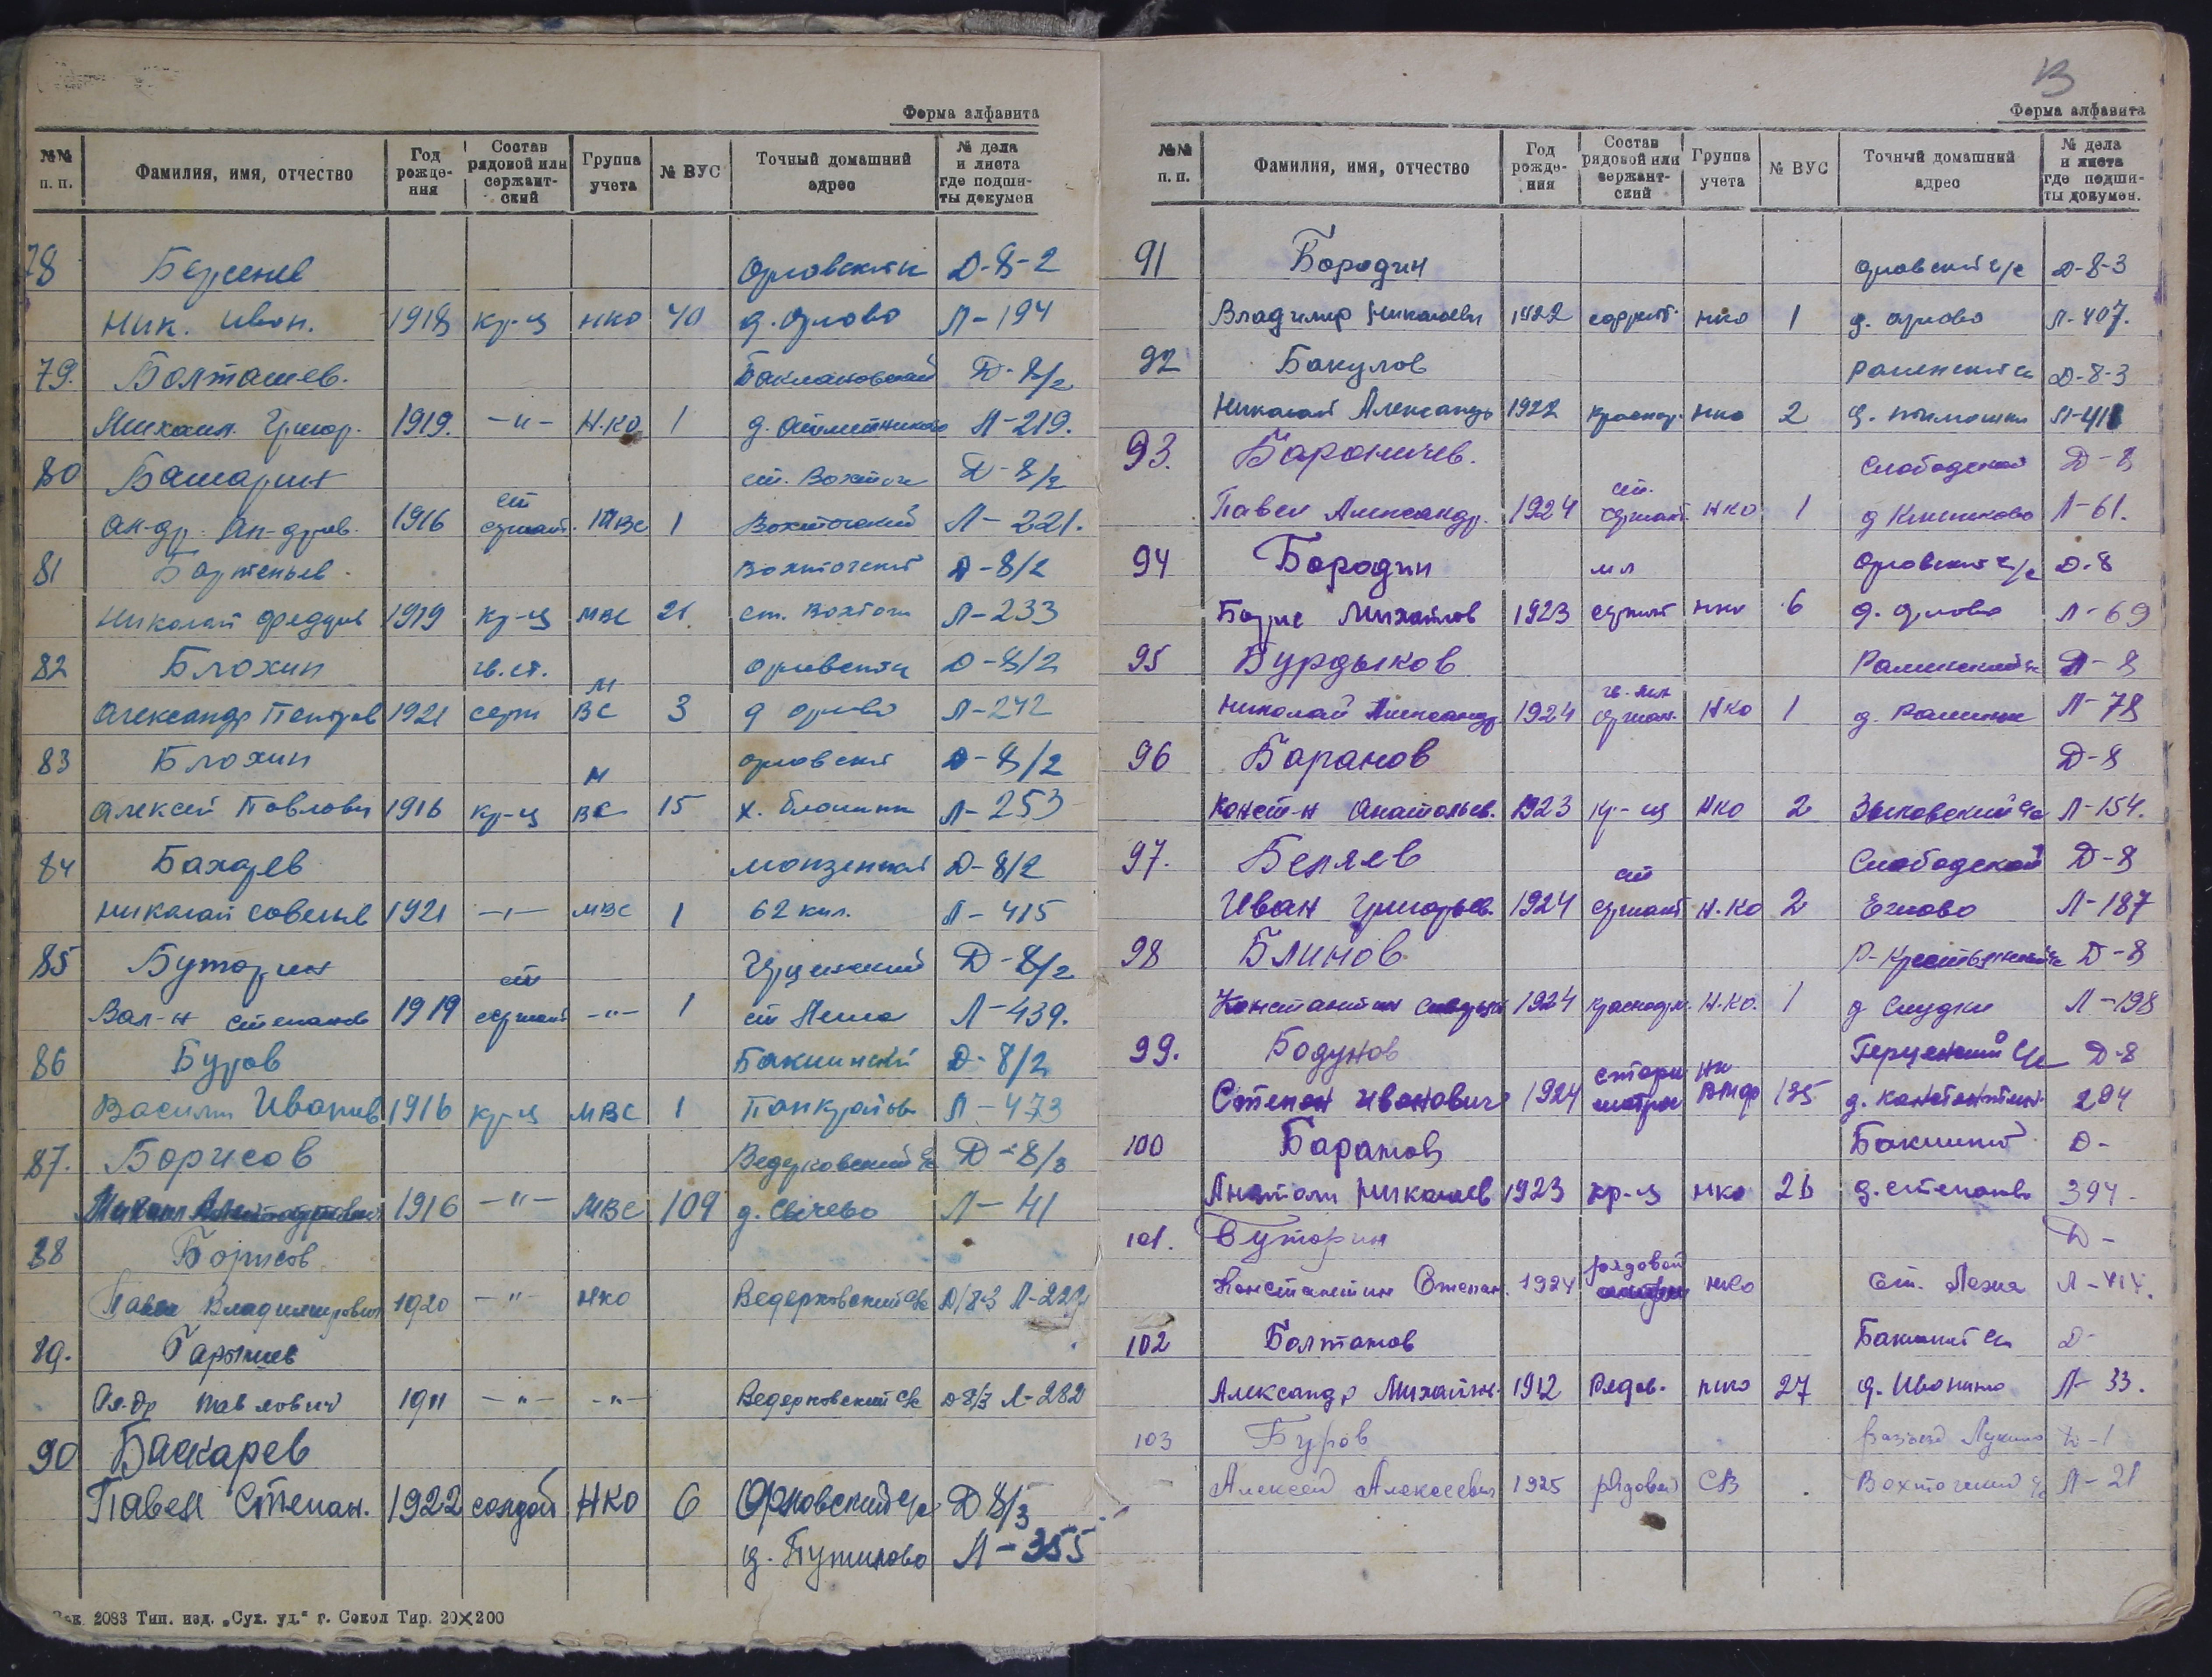 Форма алфавита
№№ п. п. Фамилия, имя, отчество Год рожде- ния Состав рядовой или сержант- ский Группа учета № ВУС Точный домашний адрес № дела и листа где подши- ты докумен
78 Д-8-2
Ник. Иван. 1918 кр-ц НКО 40 д. Орлово Л-194
79. Болташев. Баклановский Д-8/2
Михаил Григор. 1919. -"- Н.КО 1 Л-219.
80 Башарин ст. Вохтога Д-8/2
Ал-др. Ал-дров. 1916 ст сержант. МВС 1 Вохтогский Л-221.
81 Бартеньев Вохтогский Д-8/2
Николай Федоров 1919 кр-ц МВС 21. ст. Вохтоги Л-233
82 Блохин гв. ст. Д-8/2
Александр Петров 1921 серж МВС 3 д Орлово Л-242
83 Блохин Орловский Д-8/2
Алексей Павлович 1916 кр-ц МВС 15 Л-253
84 Бахарев Монзенский Д-8/2
Николай Савельев 1921 -"- МВС 1 62 кил. Л-415
85 Буторин Д-8/2
Вал-н Степанов 1919 ст сержант -"- 1 ст Лежа Л-439.
86 Буров Бакшинский Д-8/2
Василий Иванов 1916 кр-ц МВС 1 Л-473
87. Борисов Ведерковский с/с Д-8/3
1916 -"- МВС 109 д. Сычево Л-41
88 Борисов
Павел Владимирович 1920 -"- НКО Ведерковский с/с Д/8-3
89.
Ал-др Павлович 1911 -"- -"- Ведерковский с/с Д-8/3 Л-282
90 Баскарев
Павел Степан. 1922 солдат НКО 6 Орловский с/с Д 8/3
д. Путилово Л-355
2083 Тип. изд. „Сух. уд.“ г. Сокол Тир. 20×200
В
Форма алфавита
№№ п. п. Фамилия, имя, отчество Год рожде- ния Состав рядовой или сержант- ский Группа учета № ВУС Точный домашний адрес № дела и листа где подши- ты докумен.
91 Бородин Орловский с/с Д-8-3
Владимир Николаевич 1922 НКО 1 д. Орлово Л-407.
92 Бакулов Д-8-3
Николай Александр 1922 красноар. НКО 2
93. Бароничев. Слободской Д-8
Павел Александр. 1924 ст. сержант НКО 1 Л-61.
94 Бородин мл Орловский с/с Д-8
Борис Михайлов 1923 сержант НКО 6 д. Орлово Л-69
95 Бурдыков Раменский с/с Д-8
Николай Александр. 1924 гв. мл сержан. НКО 1 д. Раменье Л-78
96 Баранов Д-8
Конст-н Анатольев. 1923 кр-ц НКО 2 Зыковский с/с Л-154.
97. Беляев Слободской Д-8
Иван Григорьев. 1924 ст сержант Н.КО 2 Л-187
98 Блинов Р-Крестьянский с/с Д-8
Константин 1924 красноарм. Н.КО. 1 Л-198
99. Бодунов Герценский с/с Д-8
Степан Иванович 1924 НК ВМФ 135 294
100 Баратов Д-
Анатоли Николаев 1923 кр-ц НКО 26 д. Степаново 394-
101. Буторин Д-
Константин Степан. 1924 рядовой НКО Ст. Лежа
102 Болтанов Д-
Александр Михайлов. 1912 Рядов. НКО 27 д. Иванино Л-33.
103 Буров Д-1
Алексей Алексеевич 1925 рядовой СВ Вохтогский с/с Л-21